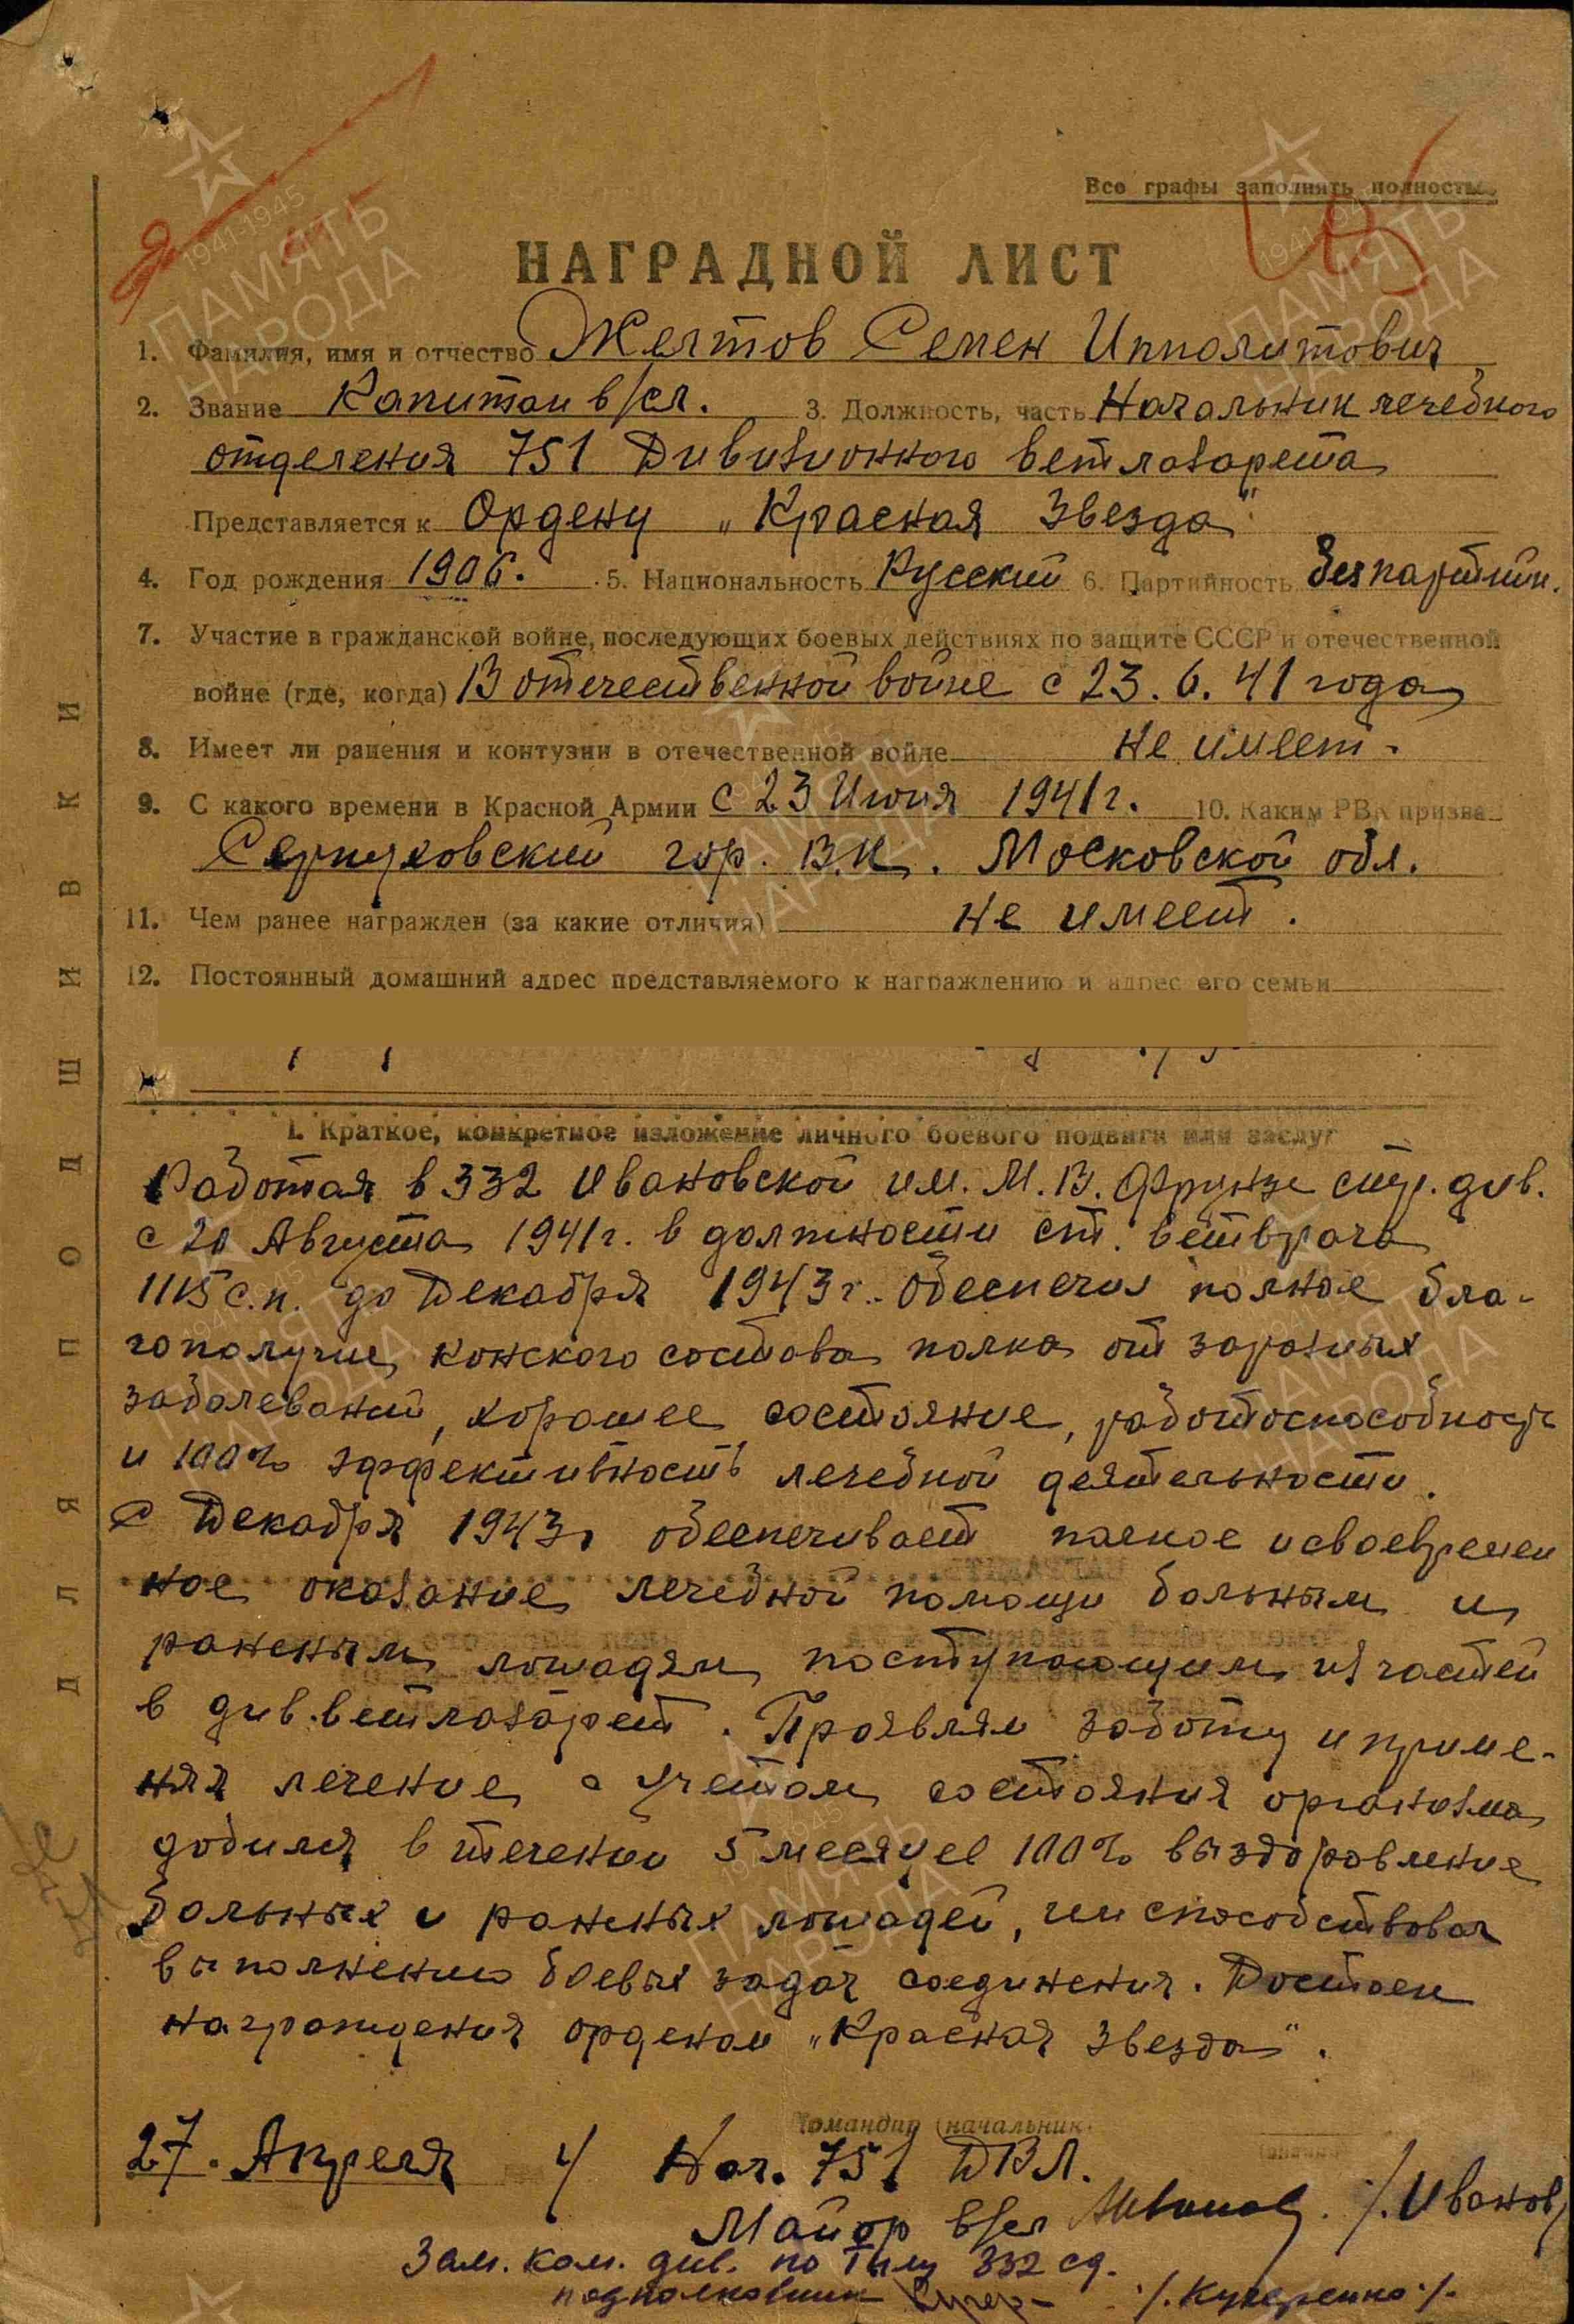 Все графы заполнять полностью
НАГРАДНОЙ ЛИСТ
1. Фамилия, имя и отчество Желтов Семен Ипполитович
2. Звание Капитан в/сл. 3. Должность, часть Начальник лечебного
отделения 751 Дивизионного ветлазарета
Представляется к Ордену „Красная Звезда“
4. Год рождения 1906. 5. Национальность Русский 6. Партийность безпартийн.
7. Участие в гражданской войне, последующих боевых действиях по защите СССР и отечественной
войне (где, когда) В отечественной войне с 23.6.41 года
8. Имеет ли ранения и контузии в отечественной войне не имеет.
9. С какого времени в Красной Армии с 23 Июня 1941 г. 10. Каким РВК призва
Серпуховский гор. В.К. Московской обл.
11. Чем ранее награжден (за какие отличия) не имеет.
12. Постоянный домашний адрес представляемого к награждению и адрес его семьи
I. Краткое, конкретное изложение личного боевого подвига или заслуг
Работая в 332 Ивановской им. М.В. Фрунзе стр. див.
с 20 Августа 1941 г. в должности ст. ветврача
1115 с.п. до Декабря 1943 г. обеспечил полное бла-
гополучие конского состава полка от заразных
заболеваний, хорошее состояние, работоспособность
и 100% эффективность лечебной деятельности.
С Декабря 1943 г. обеспечивает полное и своевремен
ное оказание лечебной помощи больным и
раненым лошадям поступающим из частей
в див.ветлазарет. Проявляя заботу и приме-
няя лечение с учетом состояния организма
добился в течении 5 месяцев 100% выздоровление
больных и раненых лошадей, чем способствовал
выполнению боевых задач соединения. Достоен
награждения орденом „Красная звезда“.
Командир (начальник)
27. Апреля 4 Нач. 751 ДВЛ.
Майор в/сл /.Иванов/
Зам. ком. див. по тылу 332 сд.
подполковник /.Кучеренко./
ДЛЯ ПОДШИВКИ
1941-1945
ПАМЯТЬ
НАРОДА